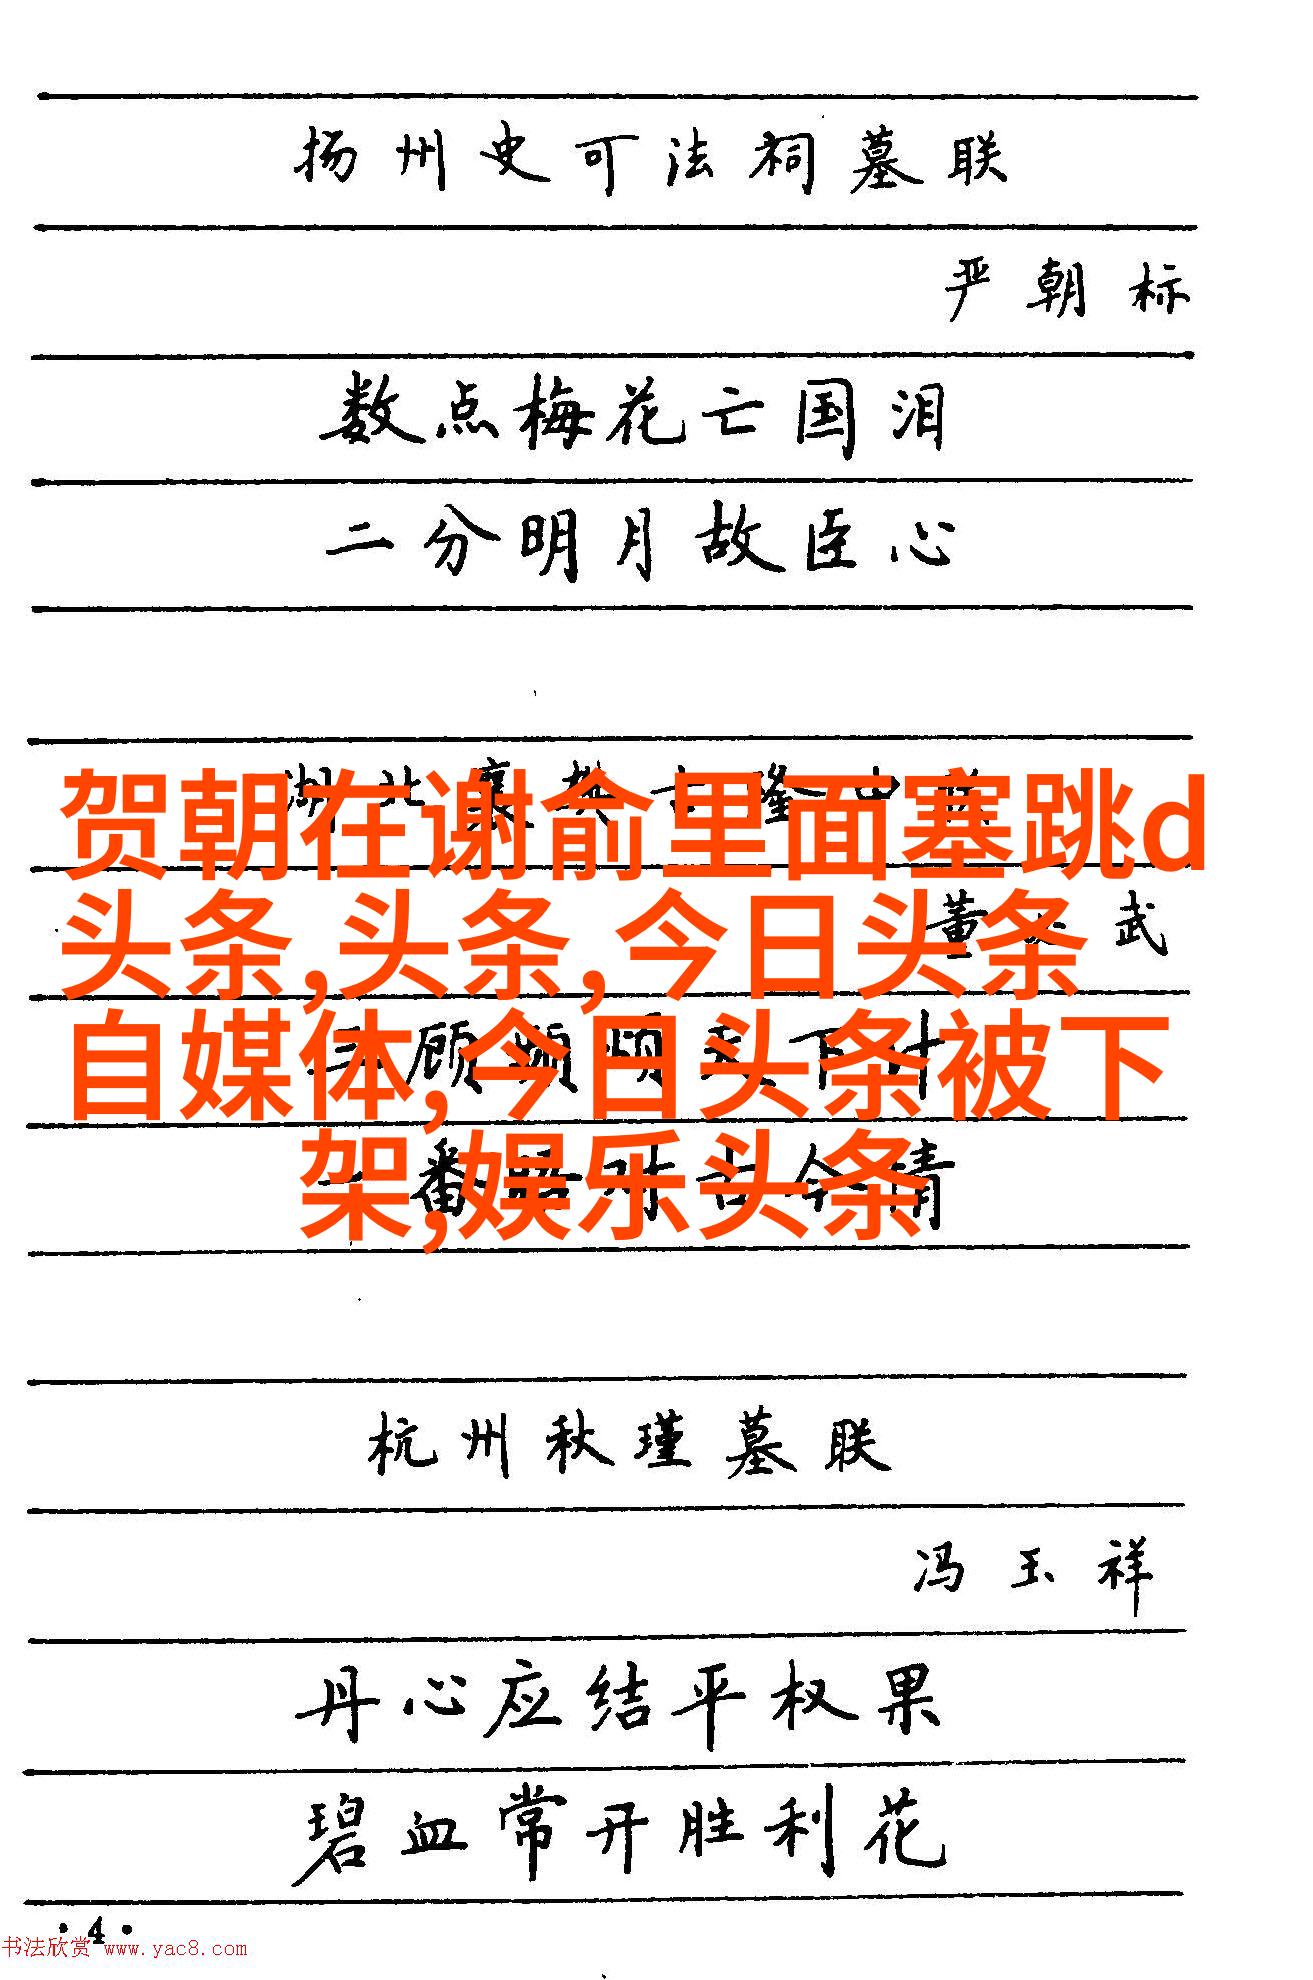 扬州史可法祠墓联
严朝标
数点梅花亡国泪
二分明月故臣心
湖北襄樊古隆中联
贺朝在谢俞里面塞跳d
董 武
头条,头条,今日头条
三顾频烦天下计
自媒体,今日头条被下
一番晤对古今情
架,娱乐头条
杭州秋瑾墓联
冯玉祥
丹心应结平权果
碧血常开胜利花
·4·
书法欣赏 www.yac8.com